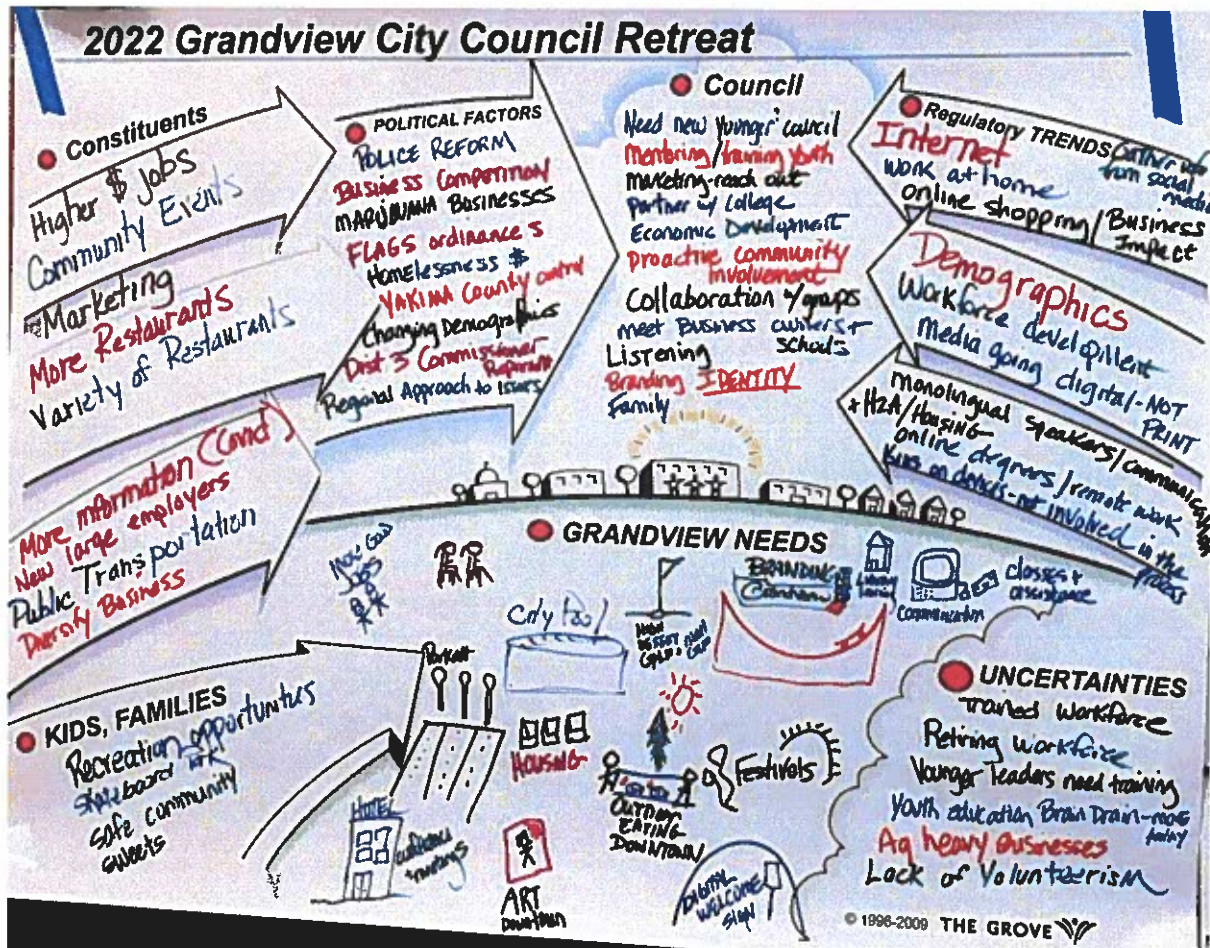 2022 Grandview City Council Retreat
Constituents
Higher $ jobs
Community Events
Marketing
More Restaurants
Variety of Restaurants
More information (Covid)
New large employers
Public Transportation
Diversity Business
POLITICAL FACTORS
POLICE REFORM
BUSINESS COMPETITION
MARIJUANA BUSINESSES
FLAGS ordinance s
Homelessness $
YAKIMA County control
Changing Demographics
Dist 3 Commissioner
Regional Approach to Issues
Council
Need new younger council
Mentoring/training youth
Marketing-reach out
Partner w/ college
Economic Development
Proactive community
involvement
Collaboration w/groups
meet Business owners +
schools
Listening
Branding IDENTITY
Family
Regulatory TRENDS
Internet
Gather info
from social
media
work at home
online shopping/Business
Impact
Demographics
Workforce
Media going digital-NOT
PRINT
monolingual speakers/communication
+ H2A/Housing-
online degrees/remote work
Kids on devices-not involved in the
process
GRANDVIEW NEEDS
More Good
Jobs
City Pool
BRANDING
Grandview
Communication
classes +
assistance
HOUSING
HOTEL
conference
+ meetings
ART
DOWNTOWN
OUTDOOR
EATING
DOWNTOWN
Festivals
DIGITAL
WELCOME
SIGN
KIDS, FAMILIES
Recreation opportunities
skateboard park
safe community
UNCERTAINTIES
Trained Workforce
Retiring workforce
Younger leaders need training
Youth education Brain Drain-move
away
Ag heavy Businesses
Lack of Volunteerism
© 1996-2009 THE GROVE